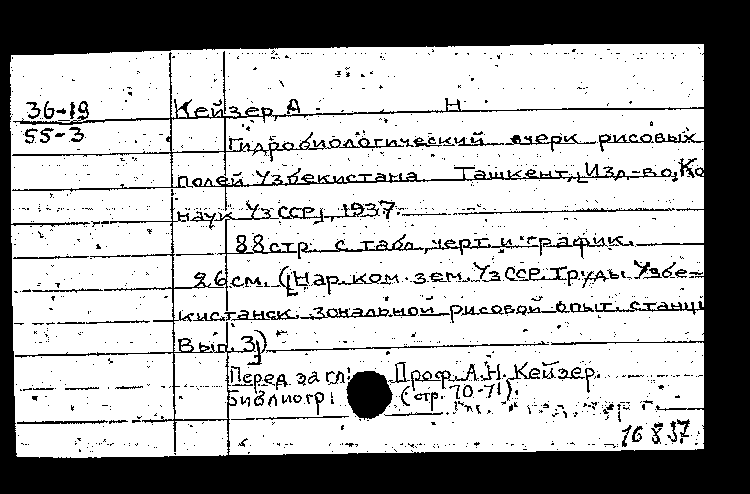 36-19 Кейзер, А Н
55-3
Гидробиологический очерк рисовых
полей Узбекистана Ташкент, Изд-во, Ко
наук УзССР], 1937.
88 стр. с табл., черт. и график.
26 см. ([Нар. ком. зем. УзССР. Труды Узбе-
кистанск. зональной рисовой опыт. станци
Вып. 3])
Перед загл: Проф. А.Н. Кейзер.
Библиогр (стр. 70-71).
16837